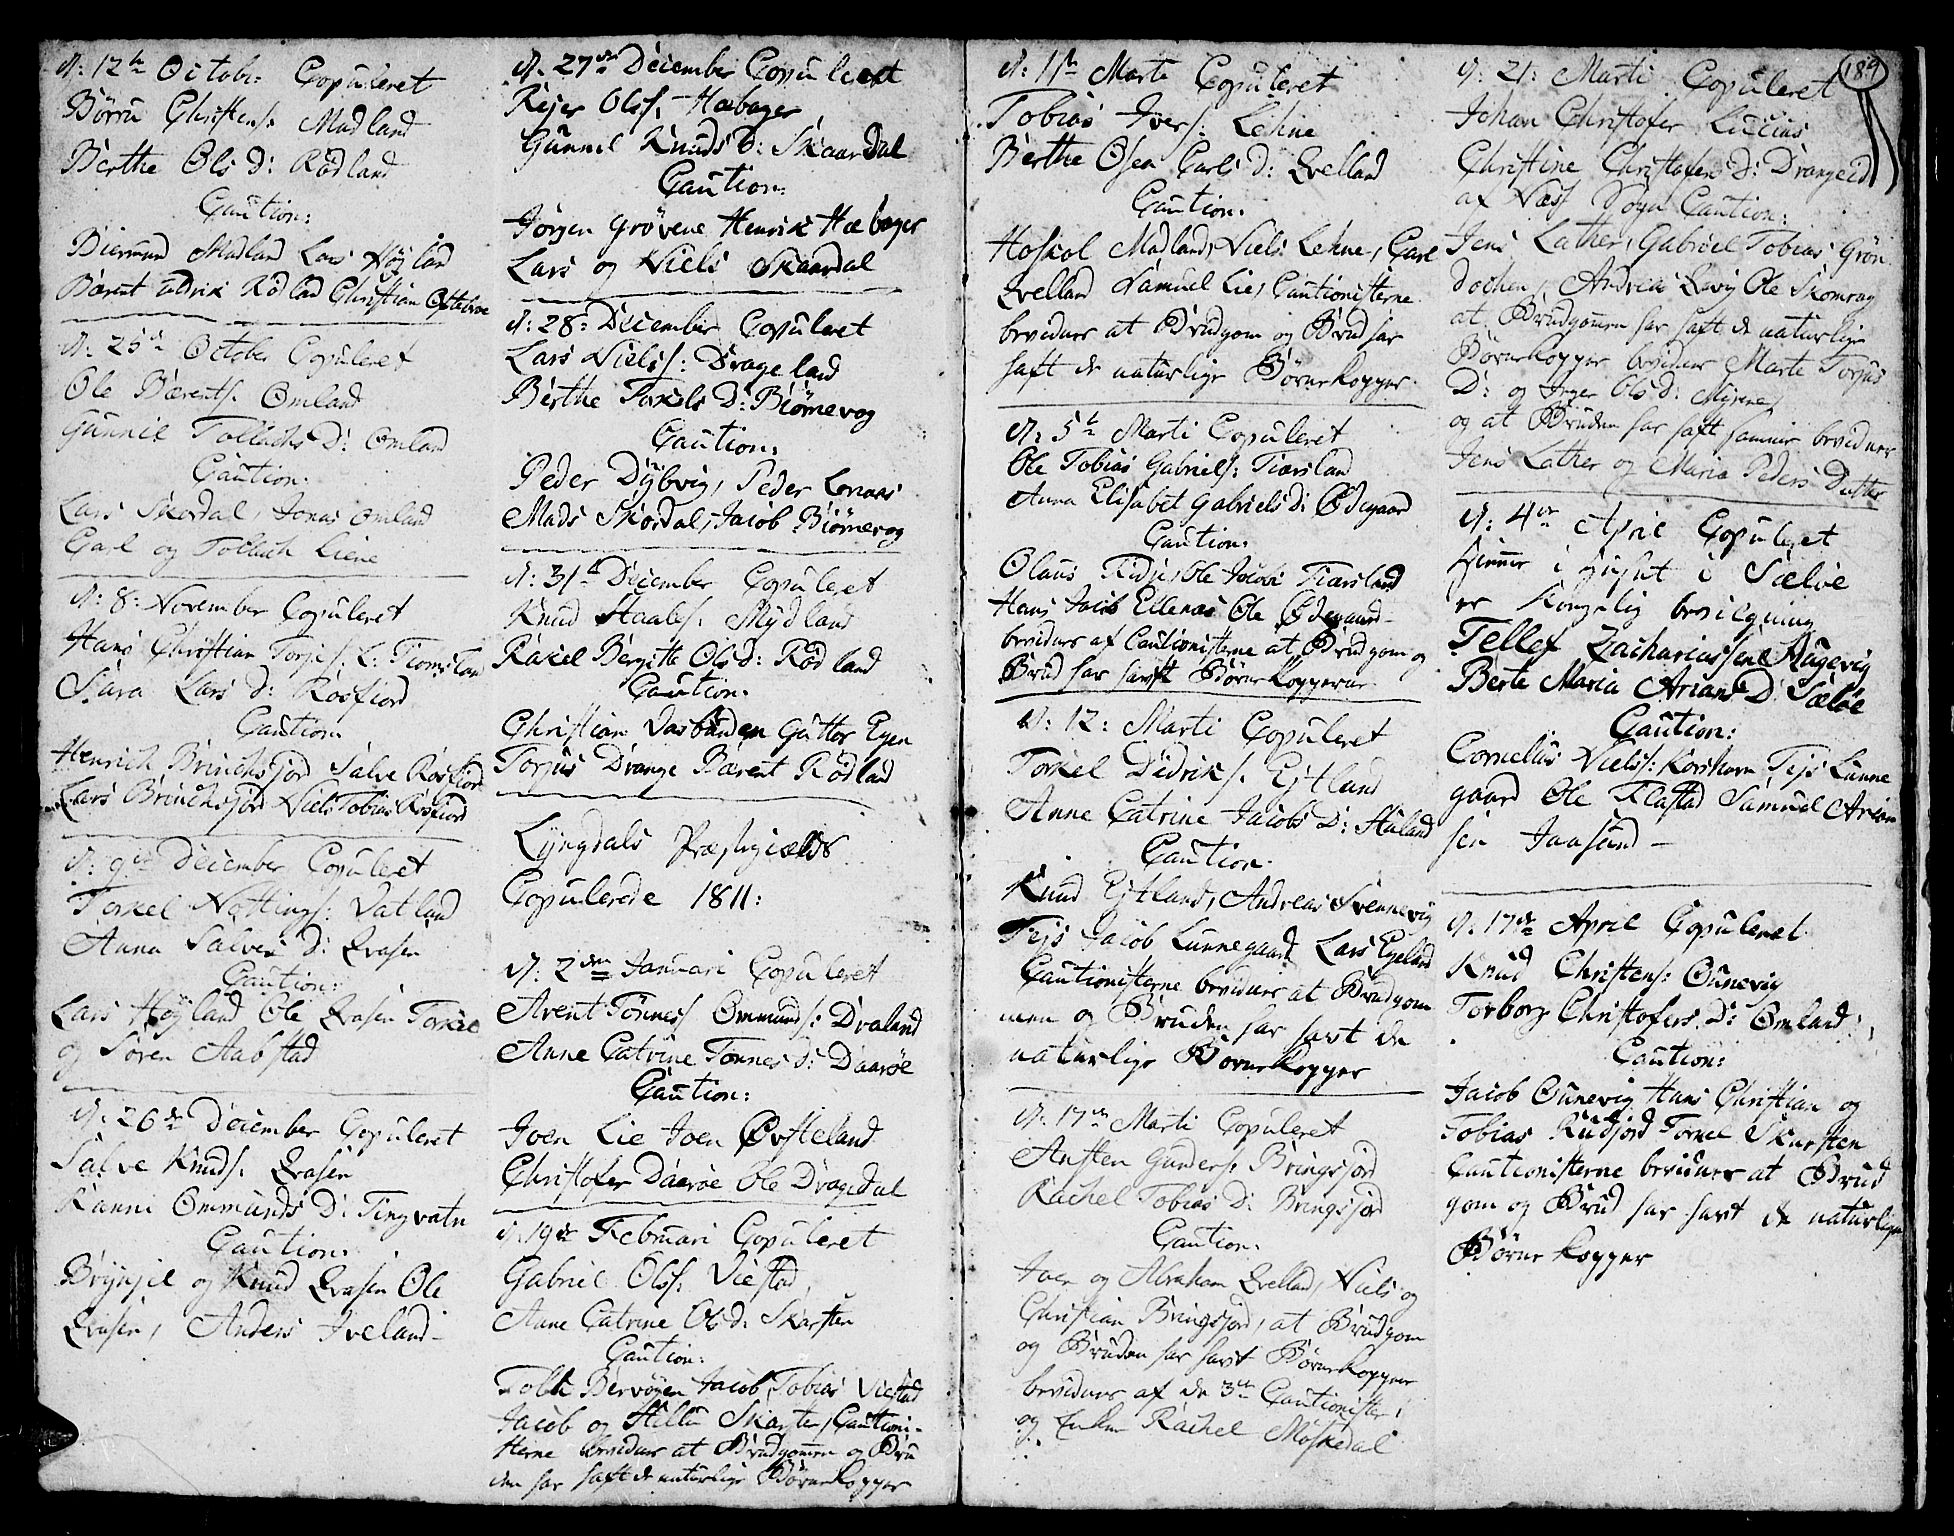 d. 12te Octobr: Copuleret
Börru Christens: Madland
Berthe Ols D: Rödland
Caution:
Biermund Madland Lars Höyland
Bærent Udrik Rödland Christian Ofstebroe
d. 25de October Copuleret
Ole Bærents: Omland
Gunnil Tollachs D: Omland
Caution:
Lars Skordal, Jonas Omland
Carl og Tollach Liene
d: 8: November Copuleret
Hans Christian Torjes: L: Tiomsland
Siara Lars D: Rosfiord
Caution
Henrich Brinchsjord Salve Rosfiord
Lars Brinchsjord Niels Tobias Rosfiord
d: 9de December Copuleret
Torkel Nottings: Vatland
Anna Salves D: Qvasen
Caution:
Lars Höyland Ole Qvasen Torkel
og Sören Aabstad
d: 26de December Copuleret
Salve Knuds: Qvasen
Ranni Ommunds D: Tingvatn
Caution:
Brynjel og Knud Qvasen Ole
Qvasen, Anders Iveland
d. 27de December Copuleret
Rejer Ols: Hæbager
Gunnil Knuds D: Skaardal
Caution:
Jörgen Grövene Henrik Hæbager
Lars og Niels Skaardal
d: 28: December Copuleret
Lars Niels: Drageland
Berthe Torkels D: Biörnevog
Caution:
Peder Dybvig, Peder Lenæs
Mads Skordal, Jacob Biörnevog
d: 31te December Copuleret
Knud Staales: Mydland
Rakel Bergitte Ols D: Rödland
Caution:
Christian Vasbunden Guttor Egen
Torjus Drange Bærent Rödland
Lyngdals Præstegields
Copulerede 1811:
d: 2den Januari Copuleret
Arent Tönnes Ommunds: Draland
Anne Catrine Tönnes D: Daaröe
Caution:
Joen Lie Joen Öfsteland
Christofer Daaröe Ole Dragedal
d. 19de Februari Copuleret
Gabriel Ols: Viestad
Anne Catrine Ols D: Skarsten
Caution:
Tolli Bervögen Jacob Tobias Viestad
Jacob og Hellu Skarsten, Cautioni-
sterne bevidner at Brudgommen og Bru
den har haft de naturlige Börnekopper
d: 11te Marti Copuleret
Tobias Ivers: Lehne
Berthe Osea Carls D: Qvelland
Caution:
Hoskol Madland, Niels Lehne, Carl
Qvelland Samuel Lie, Cautionisterne
bevidner at Brudgom og Brud har
haft de naturlige Börnekopper.
d: 5te Marti Copuleret
Ole Tobias Gabriels: Tiærsland
Anna Elisabet Gabriels D: Ödegaard
Caution:
Olaus Kidje, Ole Jacob Tiærsland
Hans Jacob Ellenæs Ole Ödegaard
bevidnes af Cautionisterne at Brudgom og
Brud har havt Börnekopperne
d: 12: Marti Copuleret
Torkel Didriks: Eitland
Anne Catrine Jacobs D: Huland
Caution:
Knud Eitland, Andreas Svennevig
Tejs Jacob Lunnegaard Lars Egeland
Cautionisterne bevidner at Brudgom
men og Bruden har havt de
naturlige Börnekopper
d: 17de Marti Copuleret
Austen Gunders: Bringsjord
Rachel Tobias D: Bringsjord
Caution:
Joen og Abraham Qvelland, Niels og
Christian Bringsjord, at Brudgom
og Bruden har havt Börnekopper
bevidnes af de 3de Cautionister,
og Enken Rachel Möskedal
189
d: 21: Marti Copuleret
Johan Christofer Lucius
Christine Christofers D: Drangeid
af Næs Sogn Caution:
Jens Lather, Gabriel Tobias Grön
dochen, Andreas Qvig Ole Skomrag
at Brudgommen har haft de naturlige
Börnekopper bevidner Marte Torjus
D: og Inger Ols D: Myrene,
og at Bruden har haft sammer bevidner
Jens Lather og Maria Peders Datter
d: 4de April Copuleret
hiemme i Huset i Sælöe
er Kongelig bevilgning
Tellef Zachariassen Augevig
Berte Maria Arians D: Sælöe
Caution:
Cornelius Niels: Korshavn Tejs Lunne
gaard Ole Flastad Samuel Arian
sen Jaasund
d. 17de April Copuleret
Knud Christens: Ounevig
Torborg Christofers D: Omland
Caution:
Jacob Ounevig Hans Christian og
Tobias Rudjord Tornel Skarsten
Cautionisterne bevidner at Brud
gom og Brud har havt de naturlige
Börnekopper